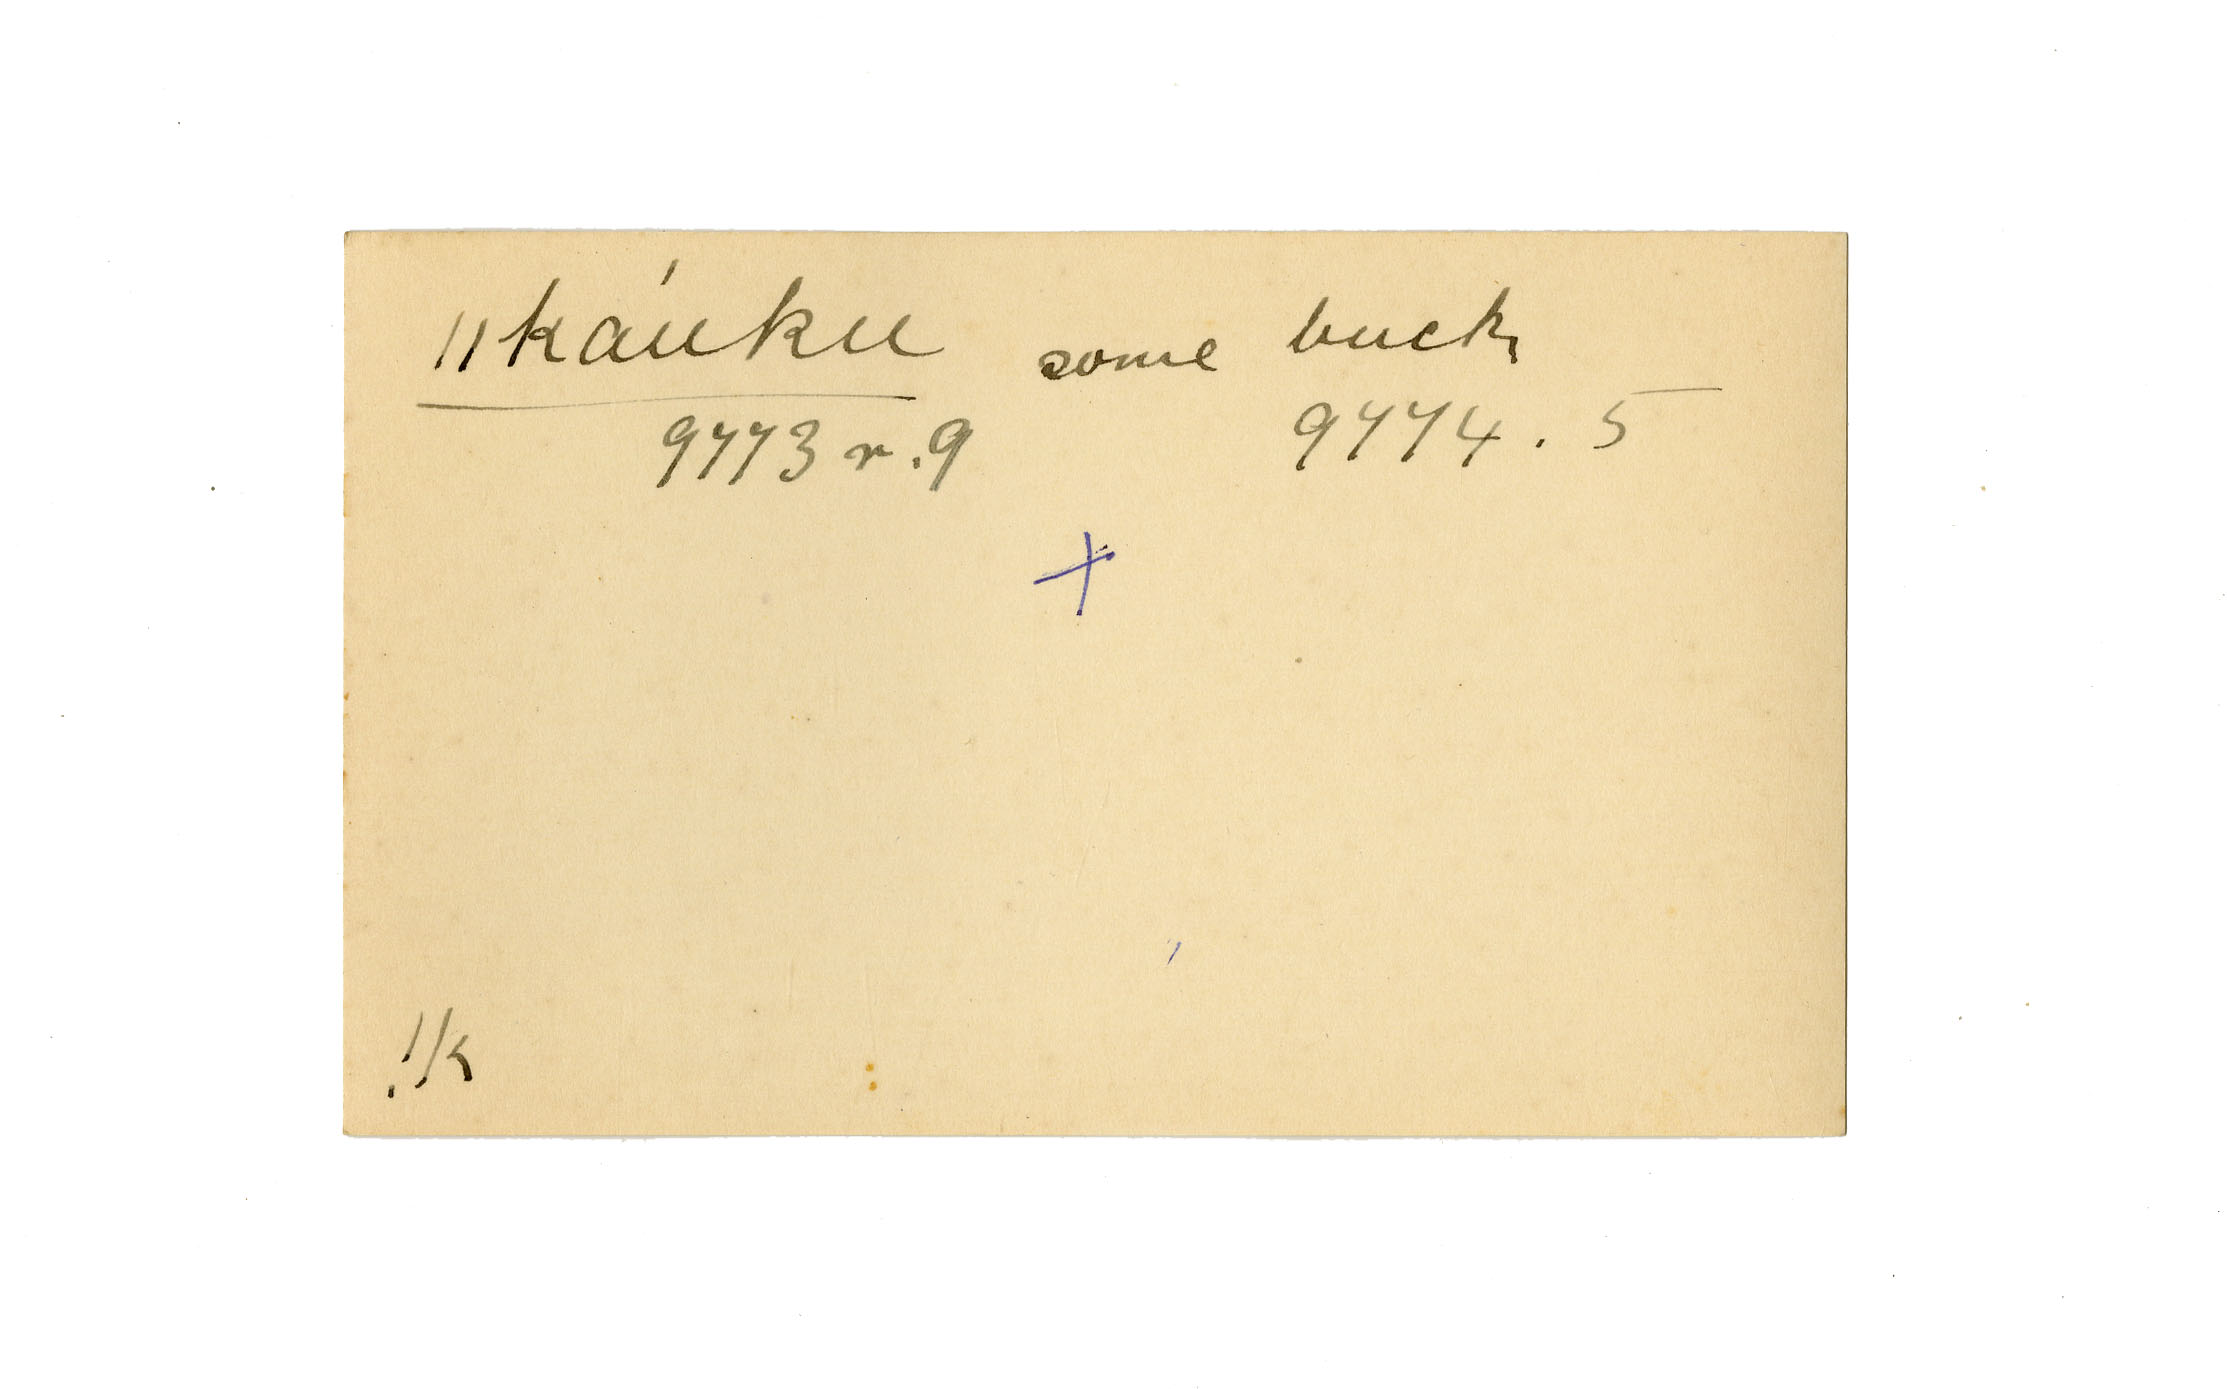 ǁkáuku some buck,
9773 r. 9 9774. 5
+
!/k